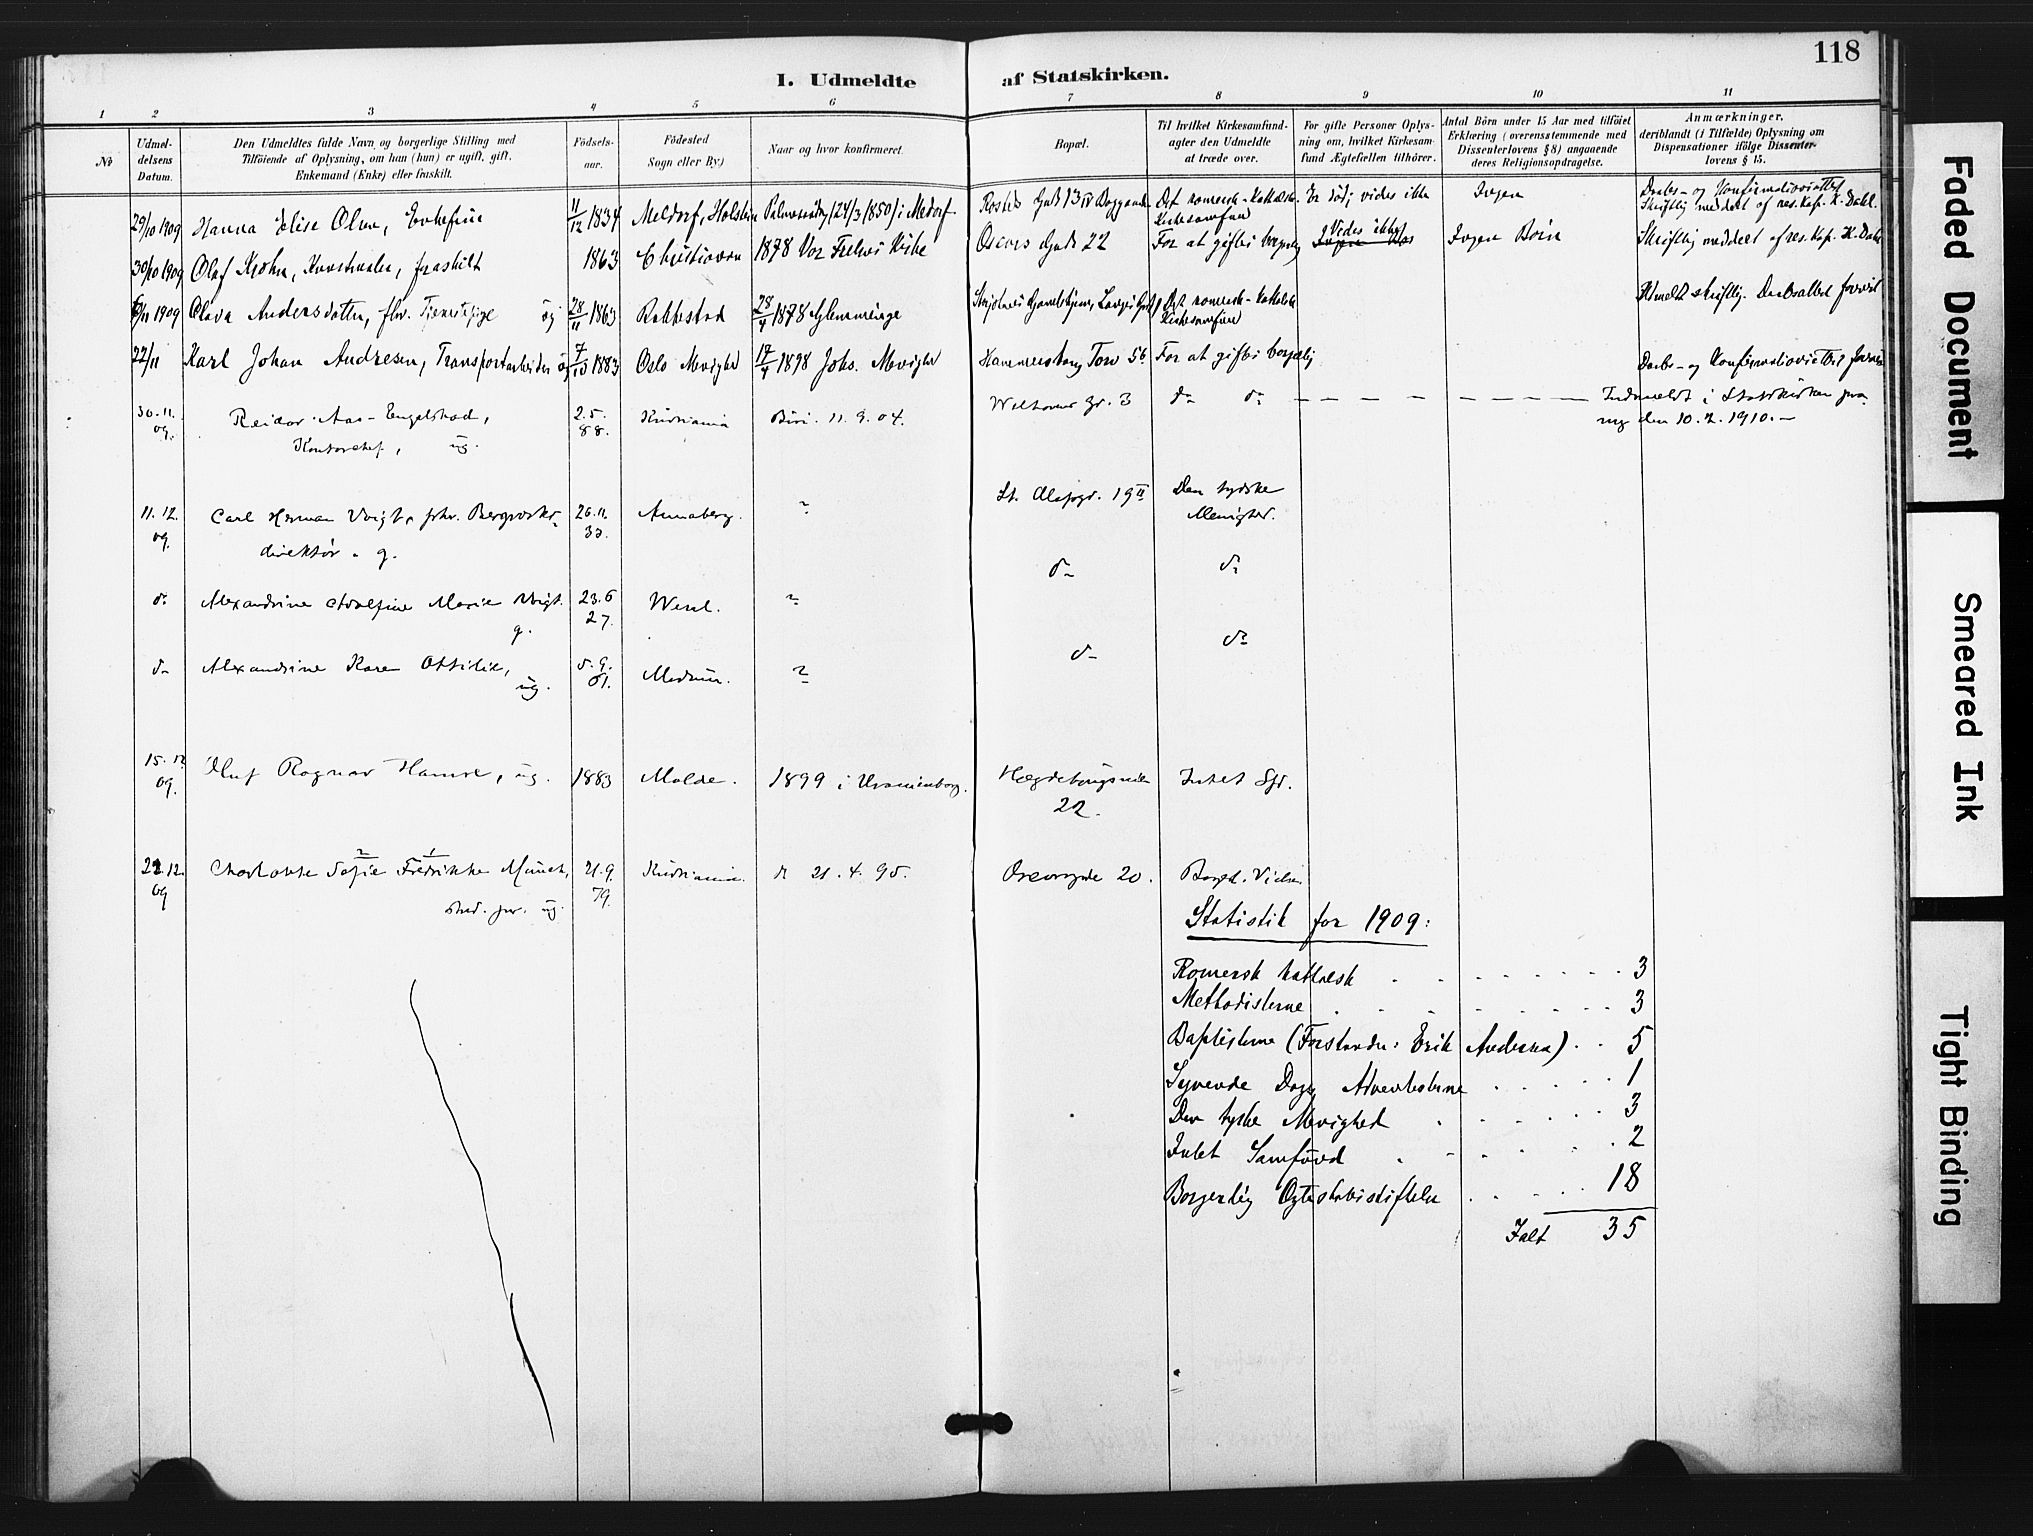 118
I. Udmeldte af Statskirken.
1 2 3 4 5 6 7 8 9 10 11
No
Udmeldelsens Datum.
Den Udmeldtes fulde Navn og borgerlige Stilling med
Tilföiende af Oplysning, om han (hun) er ugift, gift,
Enkemand (Enke) eller fraskilt.
Födselsaar.
Födested
Sogn eller By)
Naar og hvor konfirmeret.
Bopæl.
Til hvilket Kirkesamfund
agter den Udmeldte
at træde over.
For gifte Personer Oplysning
om, hvilket Kirkesamfund
Ægtefællen tilhörer.
Antal Börn under 15 Aar med tilföiet
Erklæring (overensstemmende med
Dissenterlovens § 8) angaaende
deres Religionsopdragelse.
Anmærkninger,
deriblandt (i Tilfælde) Oplysning om
Dispensationer ifölge Dissenterlovens § 15.
29/10 1909 Hanna Elise Olsen, Enkefrue 11/12 1834 Meldorf, Holstein Palmesøndag (24/3 1850) i Meldorf Det romersk-katholske Kirkesamfund Er död; vides ikke Ingen Daabs- og Konfirmationsattest
Skriftlig meddelt af res. Kap. K. Dahl.
30/10 1909 Olaf Krohn, Kunstmaler, fraskilt 1863 Christiania 1878 Vor Frelsers Kirke Oscars Gade 22 For at giftes borgerlig Vides ikke Ingen Börn Skriftlig meddelt af res. Kap. K. Dahl
6/11 1909 Olava Andersdatter, fhv. Tjenestepige ug 28/11 1863 Rakkestad 28/4 1878 Glemminge Det romersk-katholske Kirkesamfund Udmeldt skriftlig. Daabsattest forevist
22/11 Karl Johan Andresen, Transportarbeider ug 7/10 1883 Oslo Menighed 17/4 1898 Johs. Menighed Hammersborg Torv 5b For at giftes borgerlig Daabs- og Konfirmationsattest forevist
30.11.09. Reidar Aas-Engelstad, 2.5.88. Kristiania Biri. 11.9.04. Welhavens gr. 3 do do Indmeldt i Statskirken paa
Kontorchef, ug. ny den 10.2.1910.
11.12.09. Carl Herman Voigt, fhv. Bergverks- 26.11. Annaberg. ? St. Olafsgr. 19 II Den tydske Menighed.
direktör. g.
do Alexandrine Adolfine Marie Voigt. 23.6 27. Wesel. ? do do
g.
do Alexandrine Karen Ottilie, 5.9.61. Modum. ? do do
ug.
15.12.09. Oluf Ragnar Hamre, ug. 1883 Molde. 1899 i Uranienborg. Hægdehaugsveien 22. Intet Sfd.
22.12.09 Charlotte Sofie Fredrikke Munch, 21.9.79. Kristiania. do 21.4.95. Oscarsgade 20. Borgerl. Vielse
stud. jur. ug.
Statistik for 1909:
Romersk katholsk 3
Methodisterne 3
Baptisterne (Forstander: Erik Andersen) 5
Syvende Dags Adventisterne 1
Den tyske Menighed 3
Intet Samfund 2
Borgerlig Ægteskabsstiftelse 18
Ialt 35
Faded Document
Smeared Ink
Tight Binding